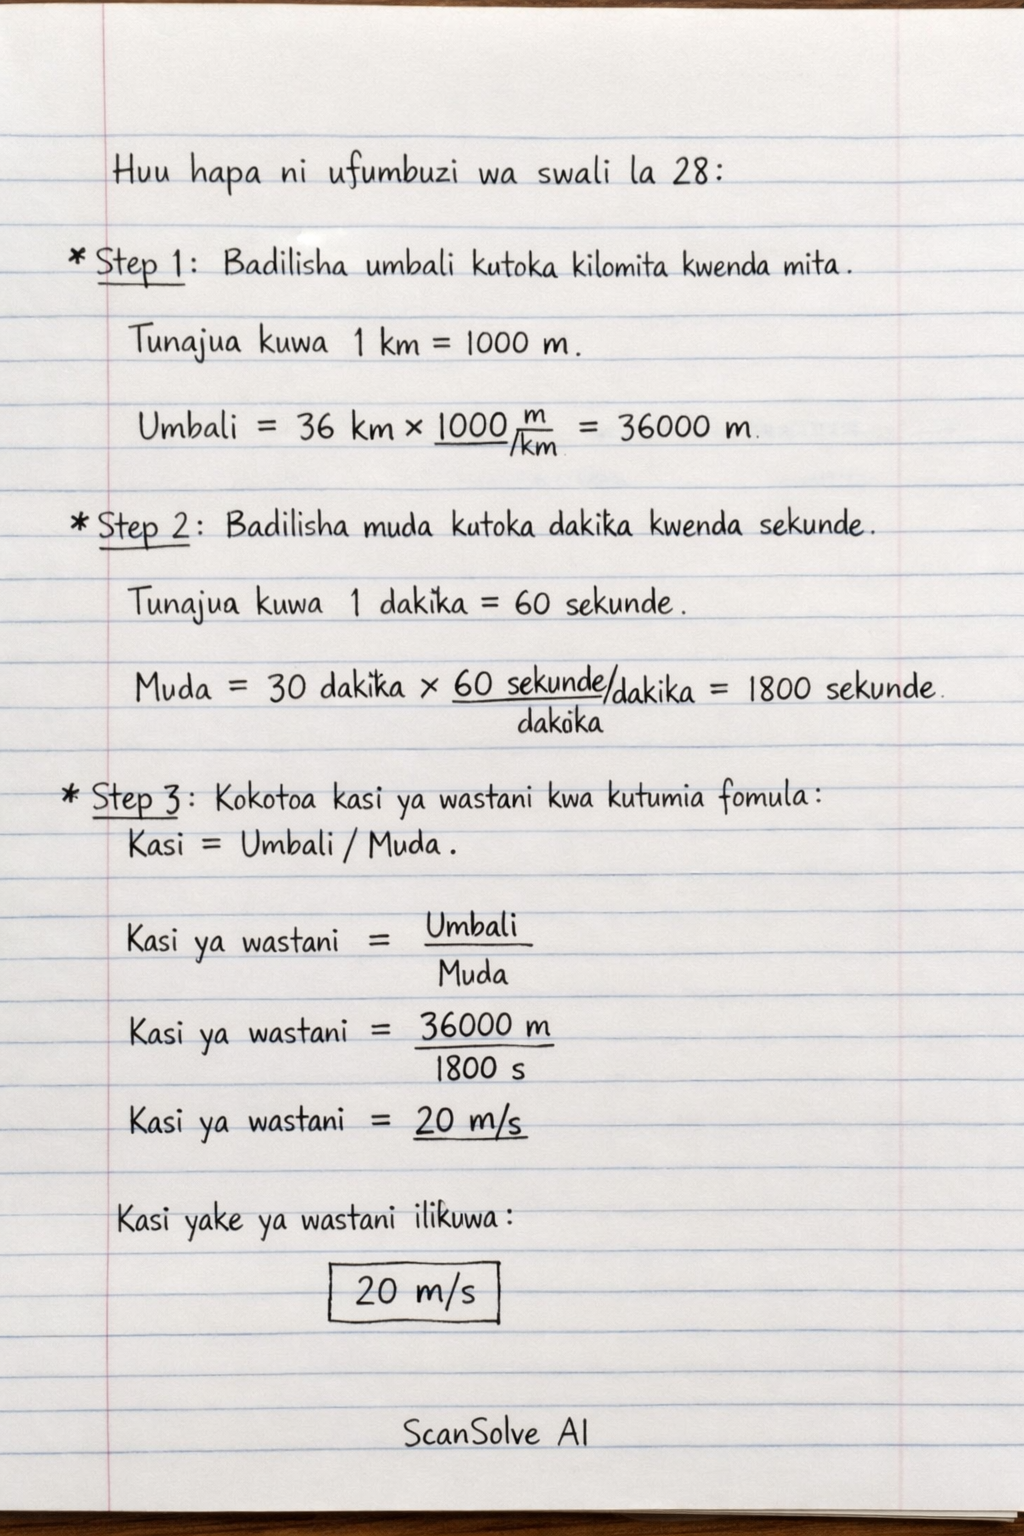 Huu hapa ni ufumbuzi wa swali la 28:
* Step 1: Badilisha umbali kutoka kilomita kwenda mita.
Tunajua kuwa 1 km = 1000 m.
Umbali = 36 km × 1000 m/km = 36000 m.
* Step 2: Badilisha muda kutoka dakika kwenda sekunde.
Tunajua kuwa 1 dakika = 60 sekunde.
Muda = 30 dakika × 60 sekunde/dakika = 1800 sekunde.
dakoka
* Step 3: Kokotoa kasi ya wastani kwa kutumia fomula:
Kasi = Umbali / Muda.
Kasi ya wastani = Umbali
Muda
Kasi ya wastani = 36000 m
1800 s
Kasi ya wastani = 20 m/s
Kasi yake ya wastani ilikuwa:
20 m/s
ScanSolve AI